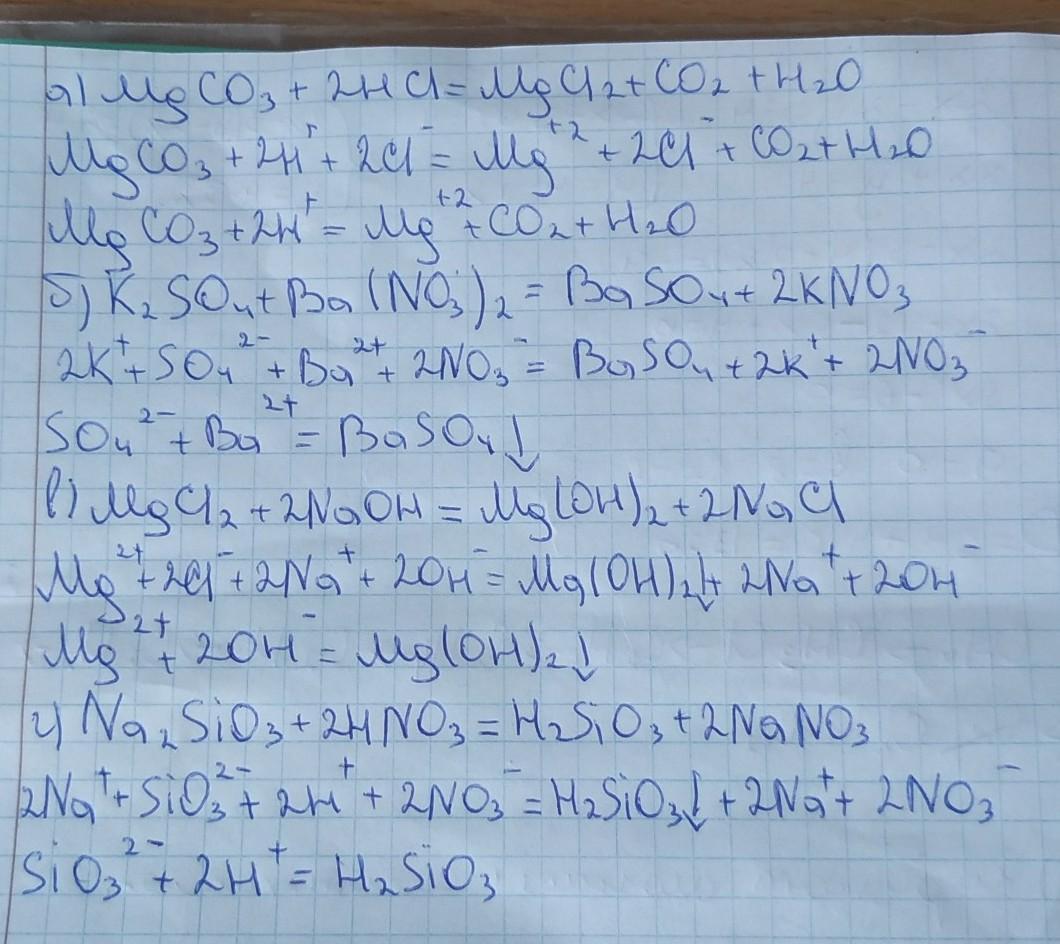 а) MgCO₃ + 2HCl = MgCl₂ + CO₂ + H₂O
MgCO₃ + 2H⁺ + 2Cl⁻ = Mg⁺² + 2Cl⁻ + CO₂ + H₂O
MgCO₃ + 2H⁺ = Mg⁺² + CO₂ + H₂O
б) K₂SO₄ + Ba(NO₃)₂ = BaSO₄ + 2KNO₃
2K⁺ + SO₄²⁻ + Ba²⁺ + 2NO₃⁻ = BaSO₄ + 2K⁺ + 2NO₃⁻
SO₄²⁻ + Ba²⁺ = BaSO₄↓
в) MgCl₂ + 2NaOH = Mg(OH)₂ + 2NaCl
Mg²⁺ + 2Cl⁻ + 2Na⁺ + 2OH⁻ = Mg(OH)₂↓ + 2Na⁺ + 2OH⁻
Mg²⁺ + 2OH⁻ = Mg(OH)₂↓
г) Na₂SiO₃ + 2HNO₃ = H₂SiO₃ + 2NaNO₃
2Na⁺ + SiO₃²⁻ + 2H⁺ + 2NO₃⁻ = H₂SiO₃↓ + 2Na⁺ + 2NO₃⁻
SiO₃²⁻ + 2H⁺ = H₂SiO₃